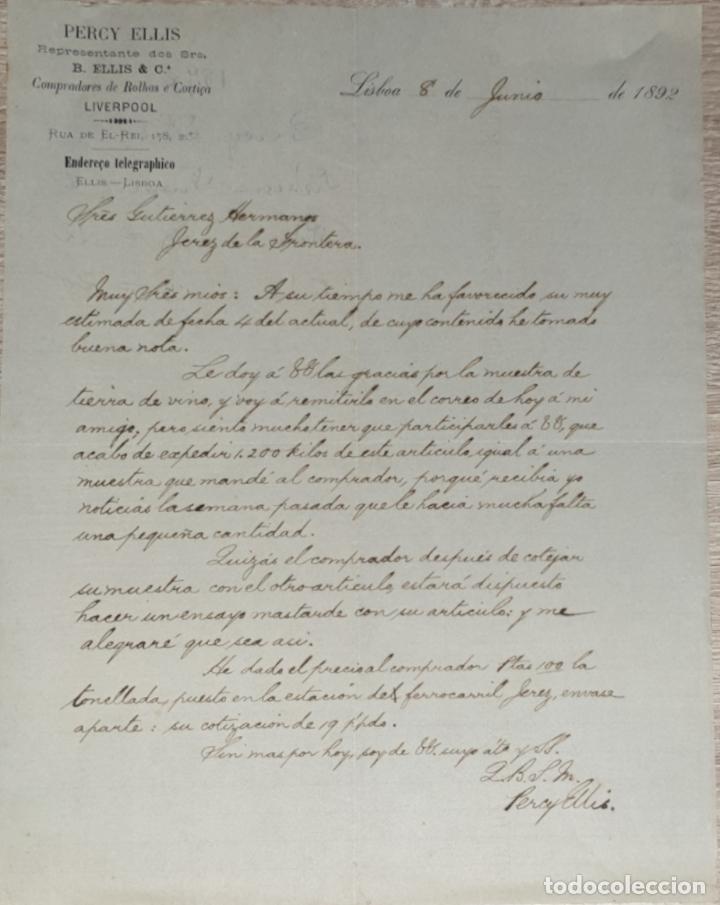 PERCY ELLIS
Representante dos Srs.
B. ELLIS & C.ª
Compradores de Rolhas e Cortiça
LIVERPOOL
RUA DE EL-REI, 178, 2.º
Endereço telegraphico
ELLIS—LISBOA
Lisboa 8 de Junio de 1892
Sres Gutierrez Hermanos
Jerez de la Frontera.
Muy Sres mios: A su tiempo me ha favorecido su muy
estimada de fecha 4 del actual, de cuyo contenido he tomado
buena nota.
Le doy á VV las gracias por la muestra de
tierra de vino, y voy á remitirlo en el correo de hoy á mi
amigo; pero, siento mucho tener que participarles á VV, que
acabo de expedir 1.200 kilos de este articulo, igual á una
muestra que mandé al comprador, porqué recibia yo
noticias la semana pasada que le hacia mucha falta
una pequeña cantidad.
Quizás el comprador después de cotejar
su muestra con el otro articulo, estará dispuesto
hacer un ensayo mas tarde con su articulo: y me
alegraré que sea asi.
He dado el precio al comprador Ptas 100 la
tonellada, puesto en la estación del ferrocarril Jerez, envase
aparte: su cotización de 19 p/pdo.
Sin mas por hoy, soy de VV. suyo áto y SS.
Q.B.S.M.
Percy Ellis.
todocoleccion